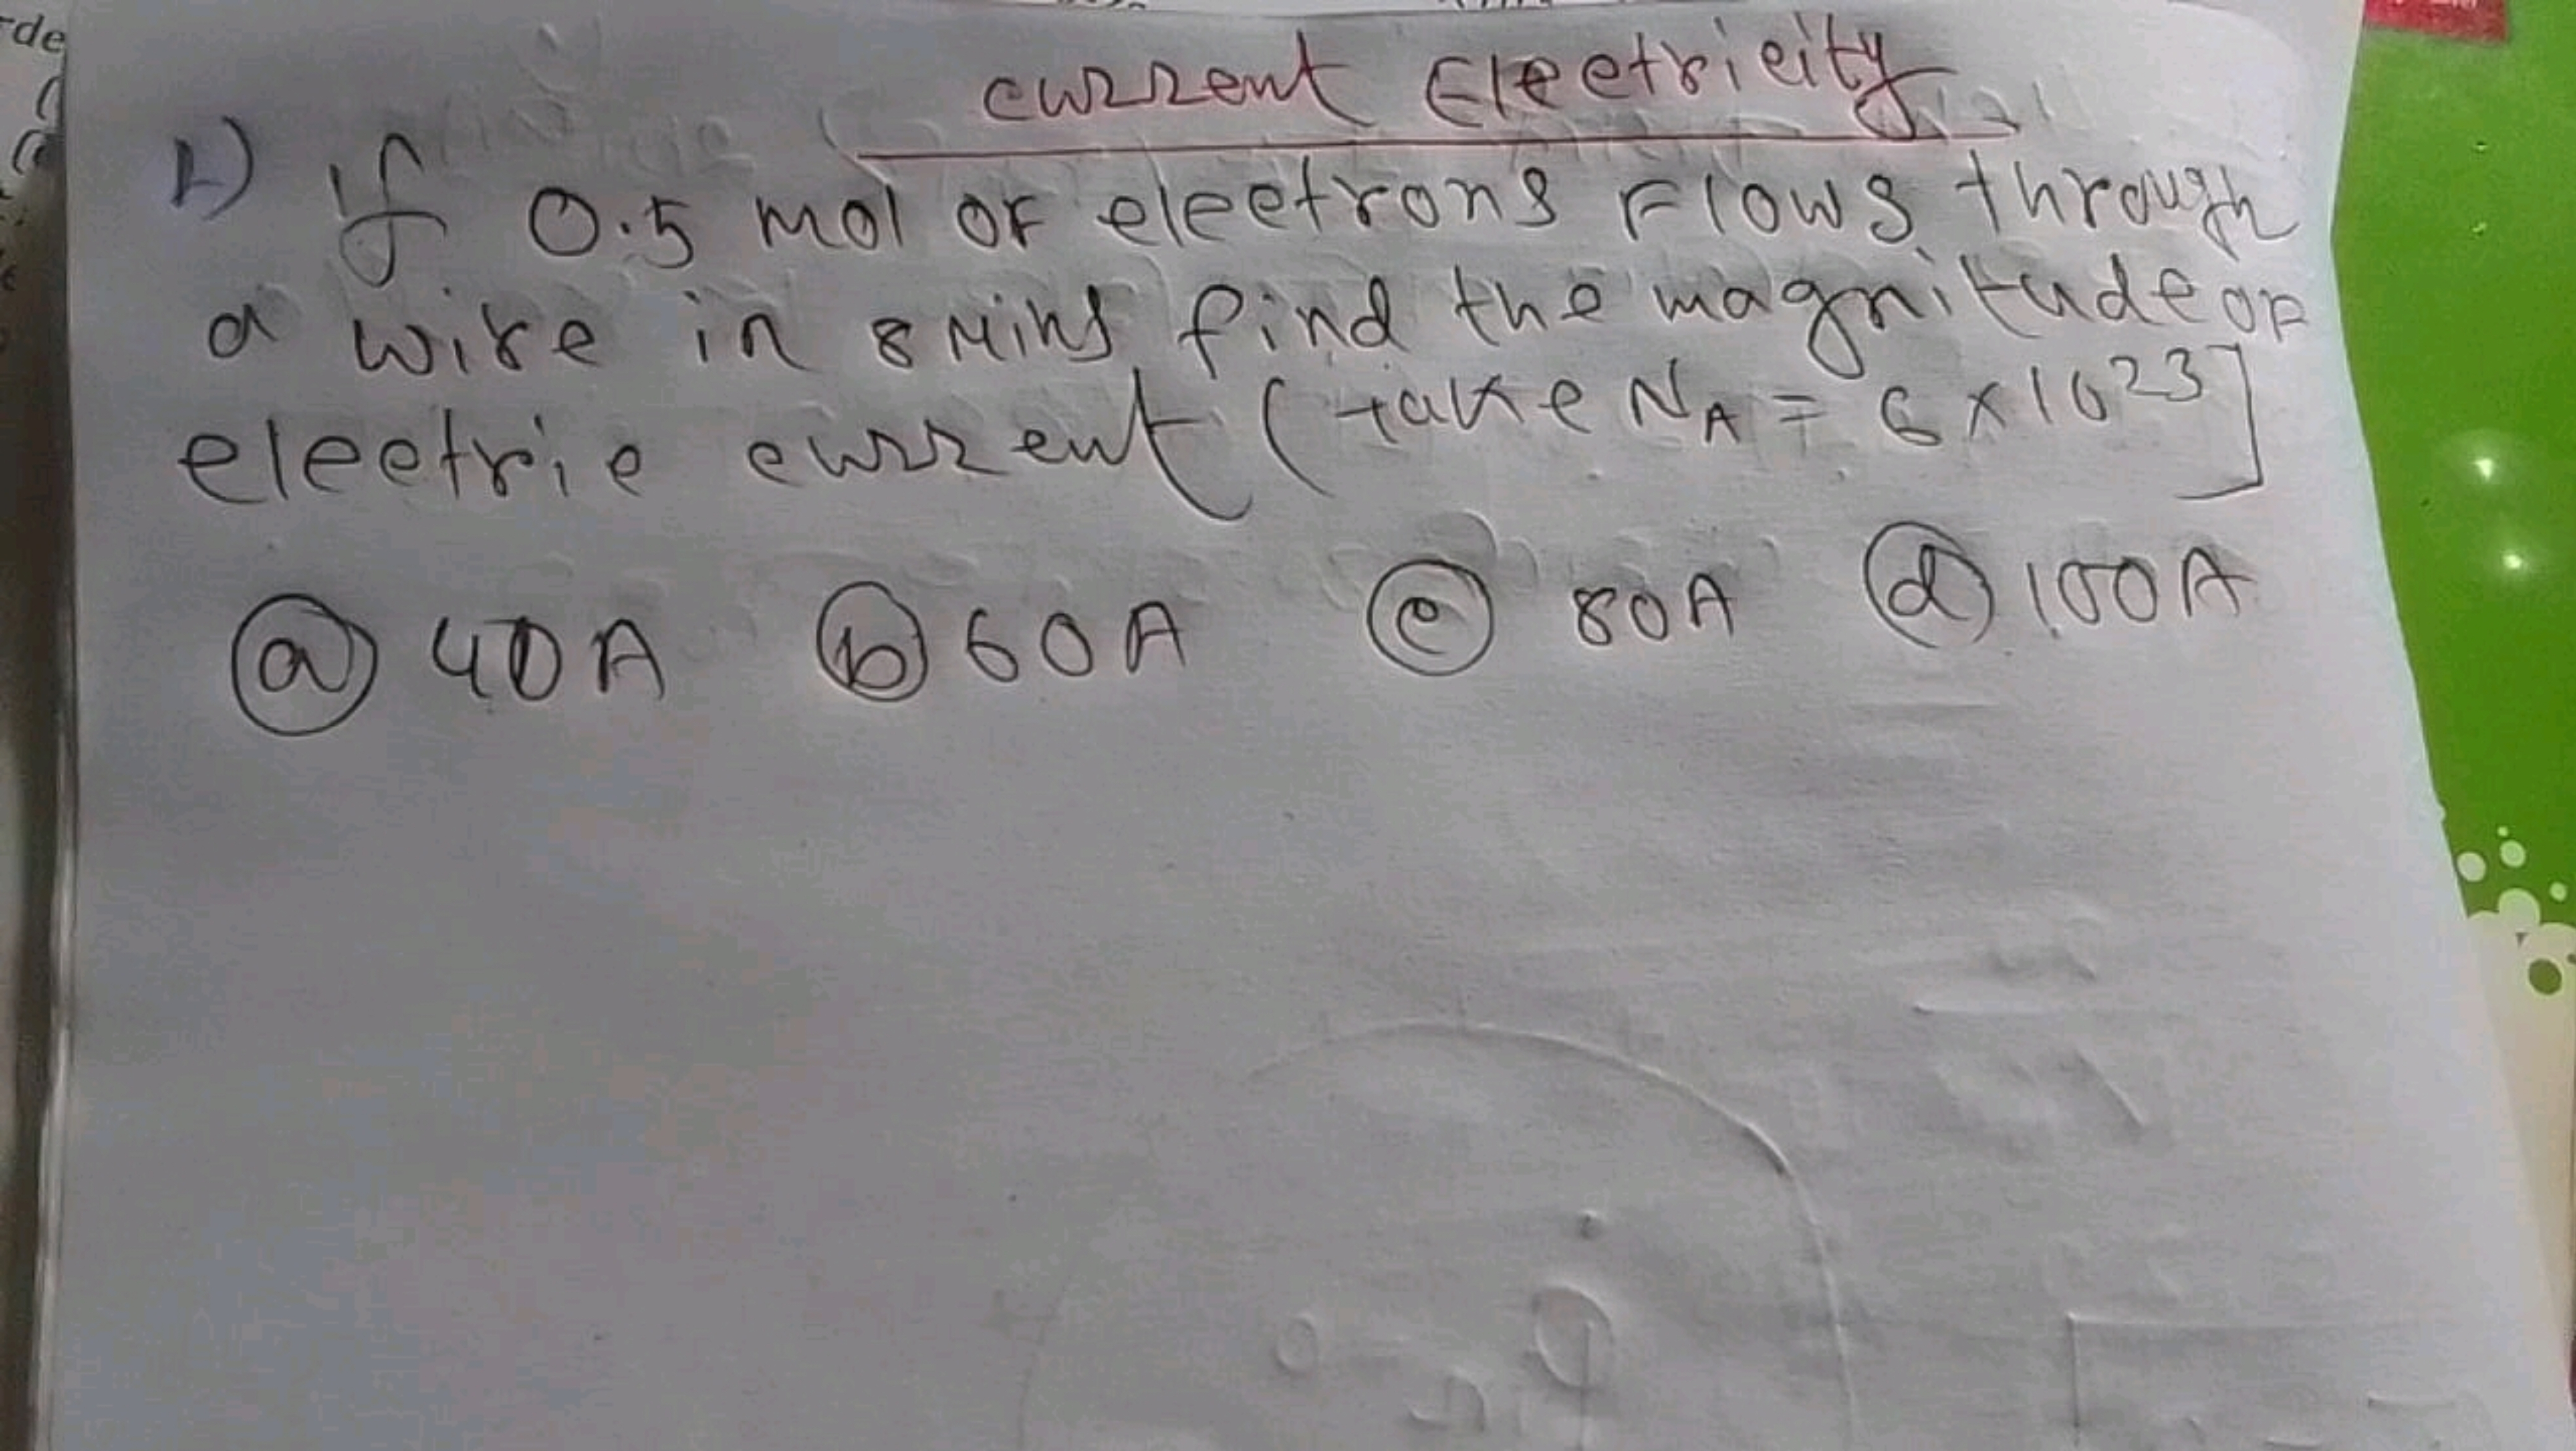 rde
current Electricity
1) If 0.5 mol of electrons flows through
a wire in 8 Mins find the magnitude of
electric current (take NA = 6 × 10²³]
(a) 40A (b) 60A (c) 80A (d) 100A